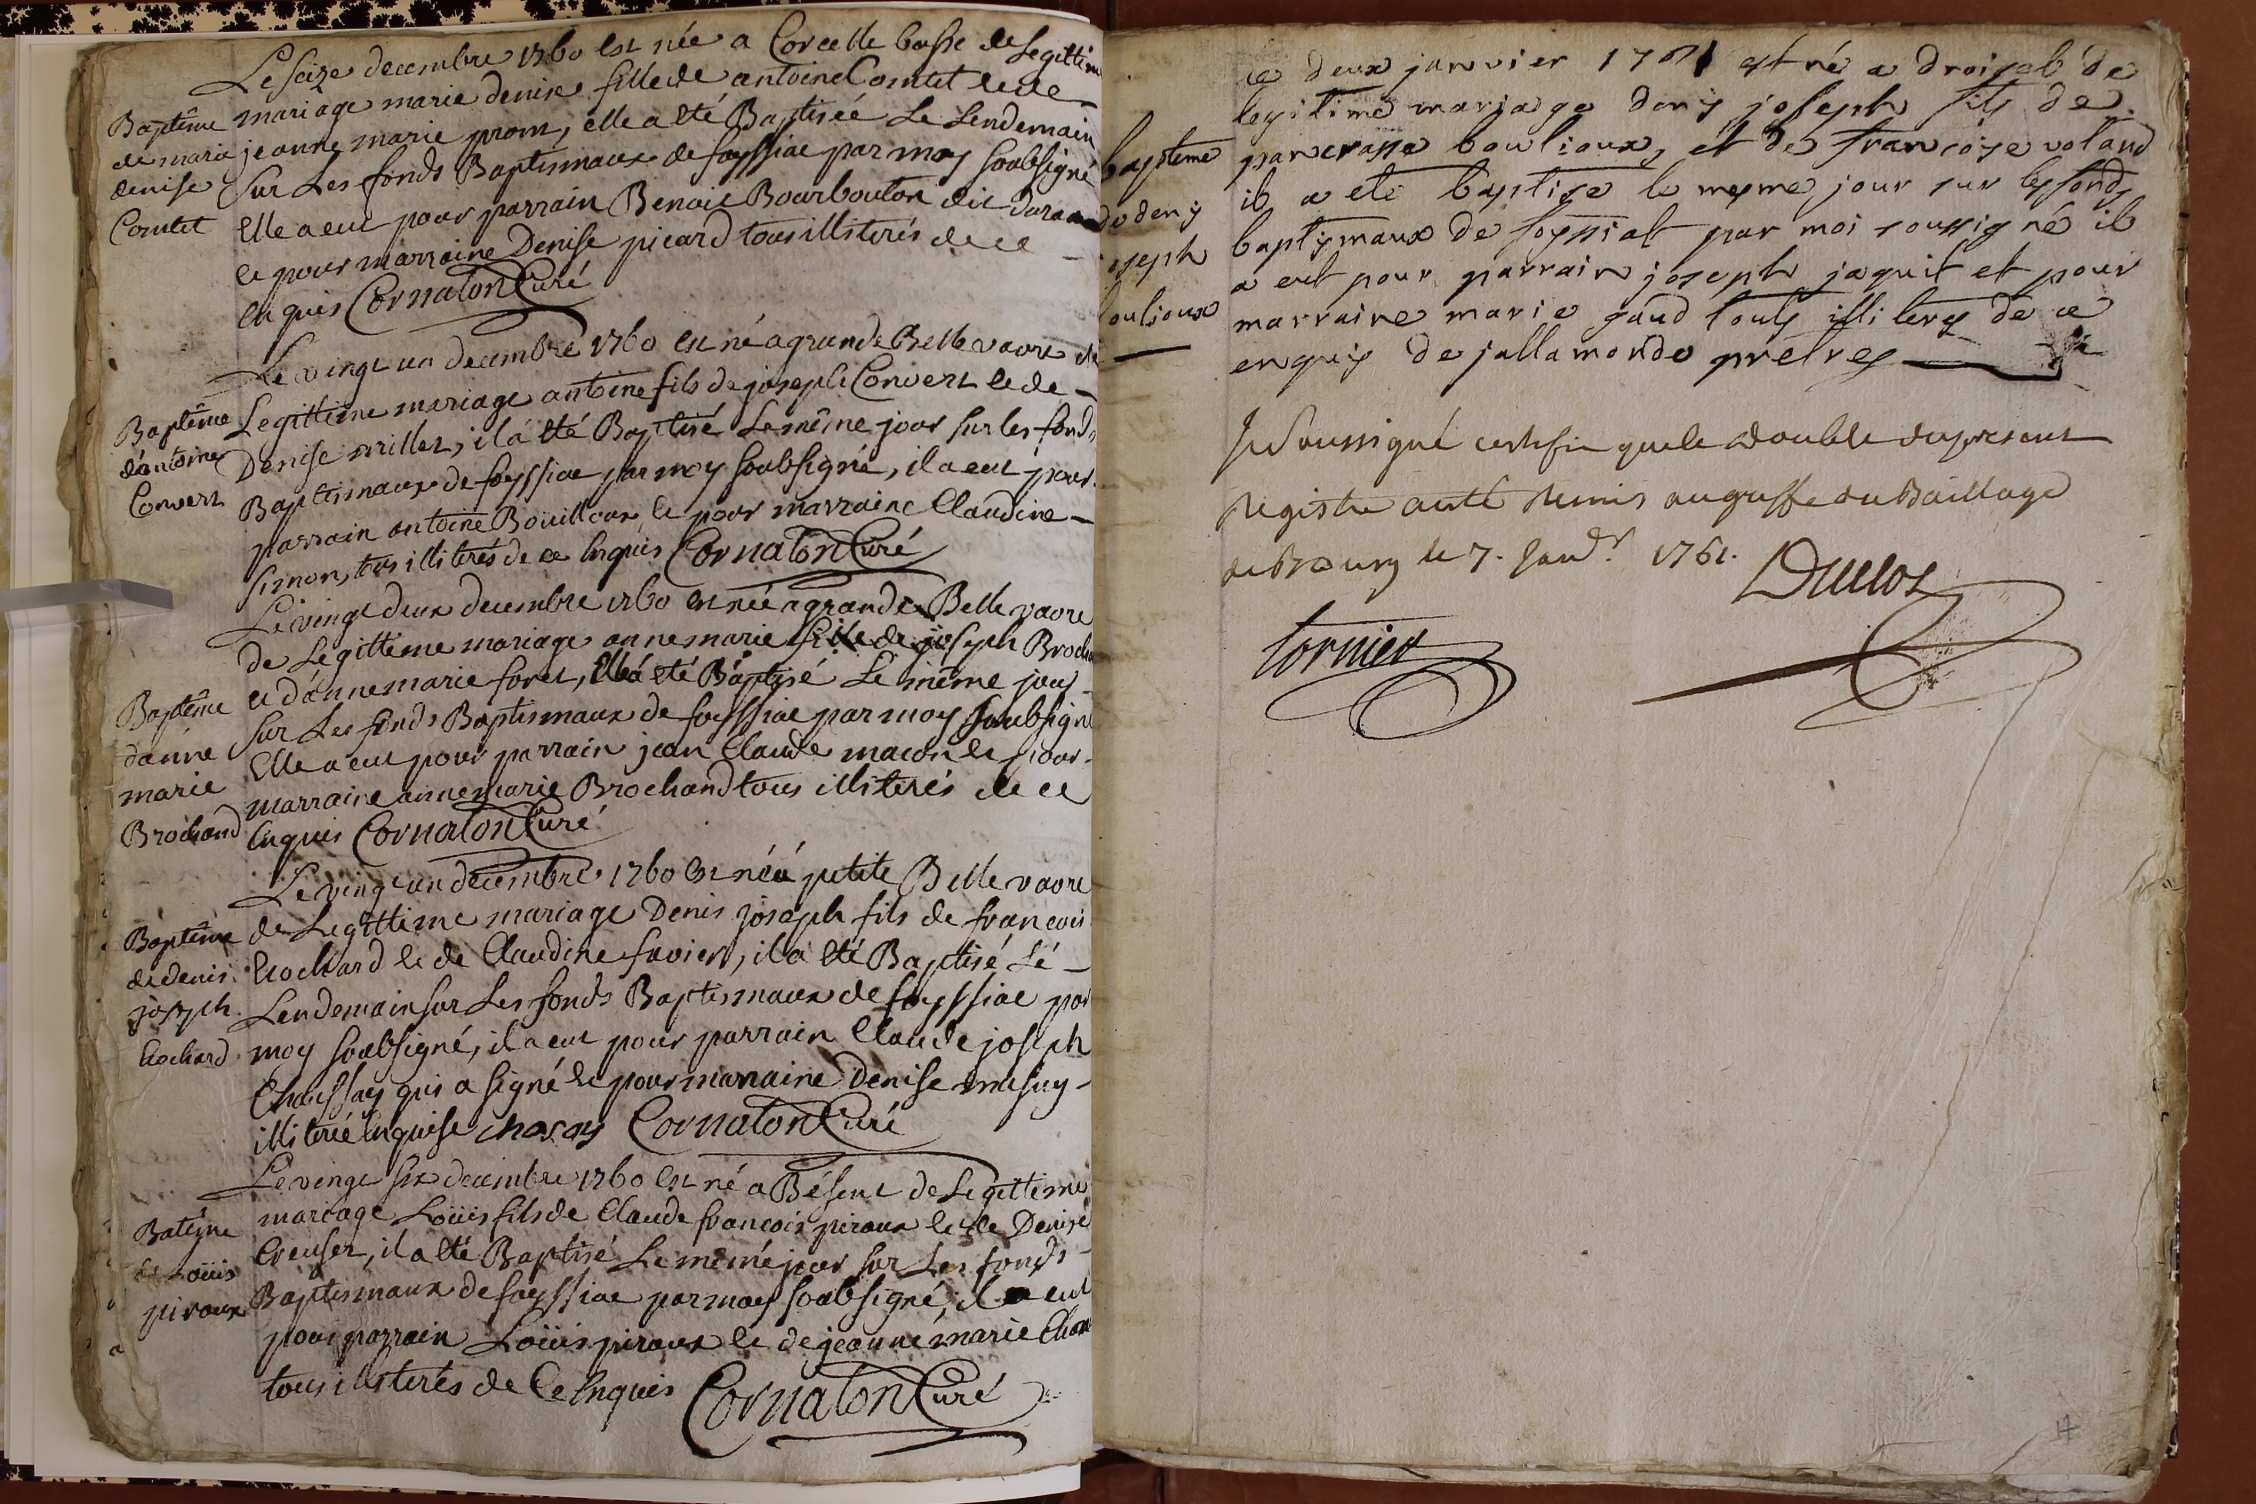 Le seize decembre 1760 est née a Corcelle basse de Legittime
Baptême
de marie
denise
Comtet
mariage marie denise fille de antoine Comtet et de
jeanne marie prom, elle a eté Baptisée Le Lendemain
sur Les fonds Baptismaux de foyssiac par moy soubsigné
elle a eut pour parrain Benoit Bourbouton dit
et pour marraine Denise picard tous illiterés de ce
enquis Cornaton Curé
Le vingt un decembre 1760 est né a grande Belle vavre de
Baptême
d'antoine
Convert
Legittime mariage antoine fils de joseph Convert et de
Denise millet, il a eté Baptisé Le même jour sur les fonds
Baptismaux de foyssiac par moy soubsigné, il a eut pour
parrain antoine Boüilloux et pour marraine Claudine
simon, tous illiterés de ce enquis Cornaton Curé
Le vingt deux decembre 1760 est née a grande Belle vavre
Baptême
d'anne
marie
Brochand
de Legittime mariage anne marie fille de joseph Brochand
et d'anne marie foret, Elle a eté Baptisé Le même jour
sur Les fonds Baptismaux de foyssiac par moy soubsigné
Elle a eut pour parrain jean Claude macon et pour
marraine anne marie Brochand tous illiterés de ce
enquis Cornaton Curé
Le vingt un decembre 1760 est né a petite Belle vavre
Baptême
de denis
joseph
Crochard
de Legittime mariage Denis joseph fils de francois
Crochard et de Claudine favier, il a eté Baptisé Le
Lendemain sur Les fonds Baptismaux de foyssiac par
moy soubsigné, il a eut pour parrain Claude joseph
Chaussay qui a signé et pour marraine Denise musuy
illiterée enquise chasay Cornaton Curé
Le vingt six decembre 1760 est né a Bésent de Legittime
Batême
de Loüis
piroux
mariage Loüis fils de Claude francois piroux et de Denise
Creuset, il a eté Baptisé Le même jour sur Les fonds
Baptismaux de foyssiac par moy soubsigné, il a eut
pour parrain Loüis piroux et de jeanne marie
tous illiterés de Ce enquis Cornaton Curé
ce deux janvier 1761 est né a droiseb de
bapteme
de denis
joseph
boulioux
legitime mariage denis joseph fils de
pancrasse boulioux, et de francoise voland
il a eté baptise le mesme jour sur les fonds
baptismaux de foyssiat par moi soussigné il
a eut pour parrain joseph jaquit et pour
marraine marie gaud touts illiteres de ce
enquis de jallamondo prêtres
Je soussigné certifie que le double du present
Registre a eté Remis au greffe du Baillage
de Bourg le 7. Janvr. 1761.
Duclos
Cornier
17